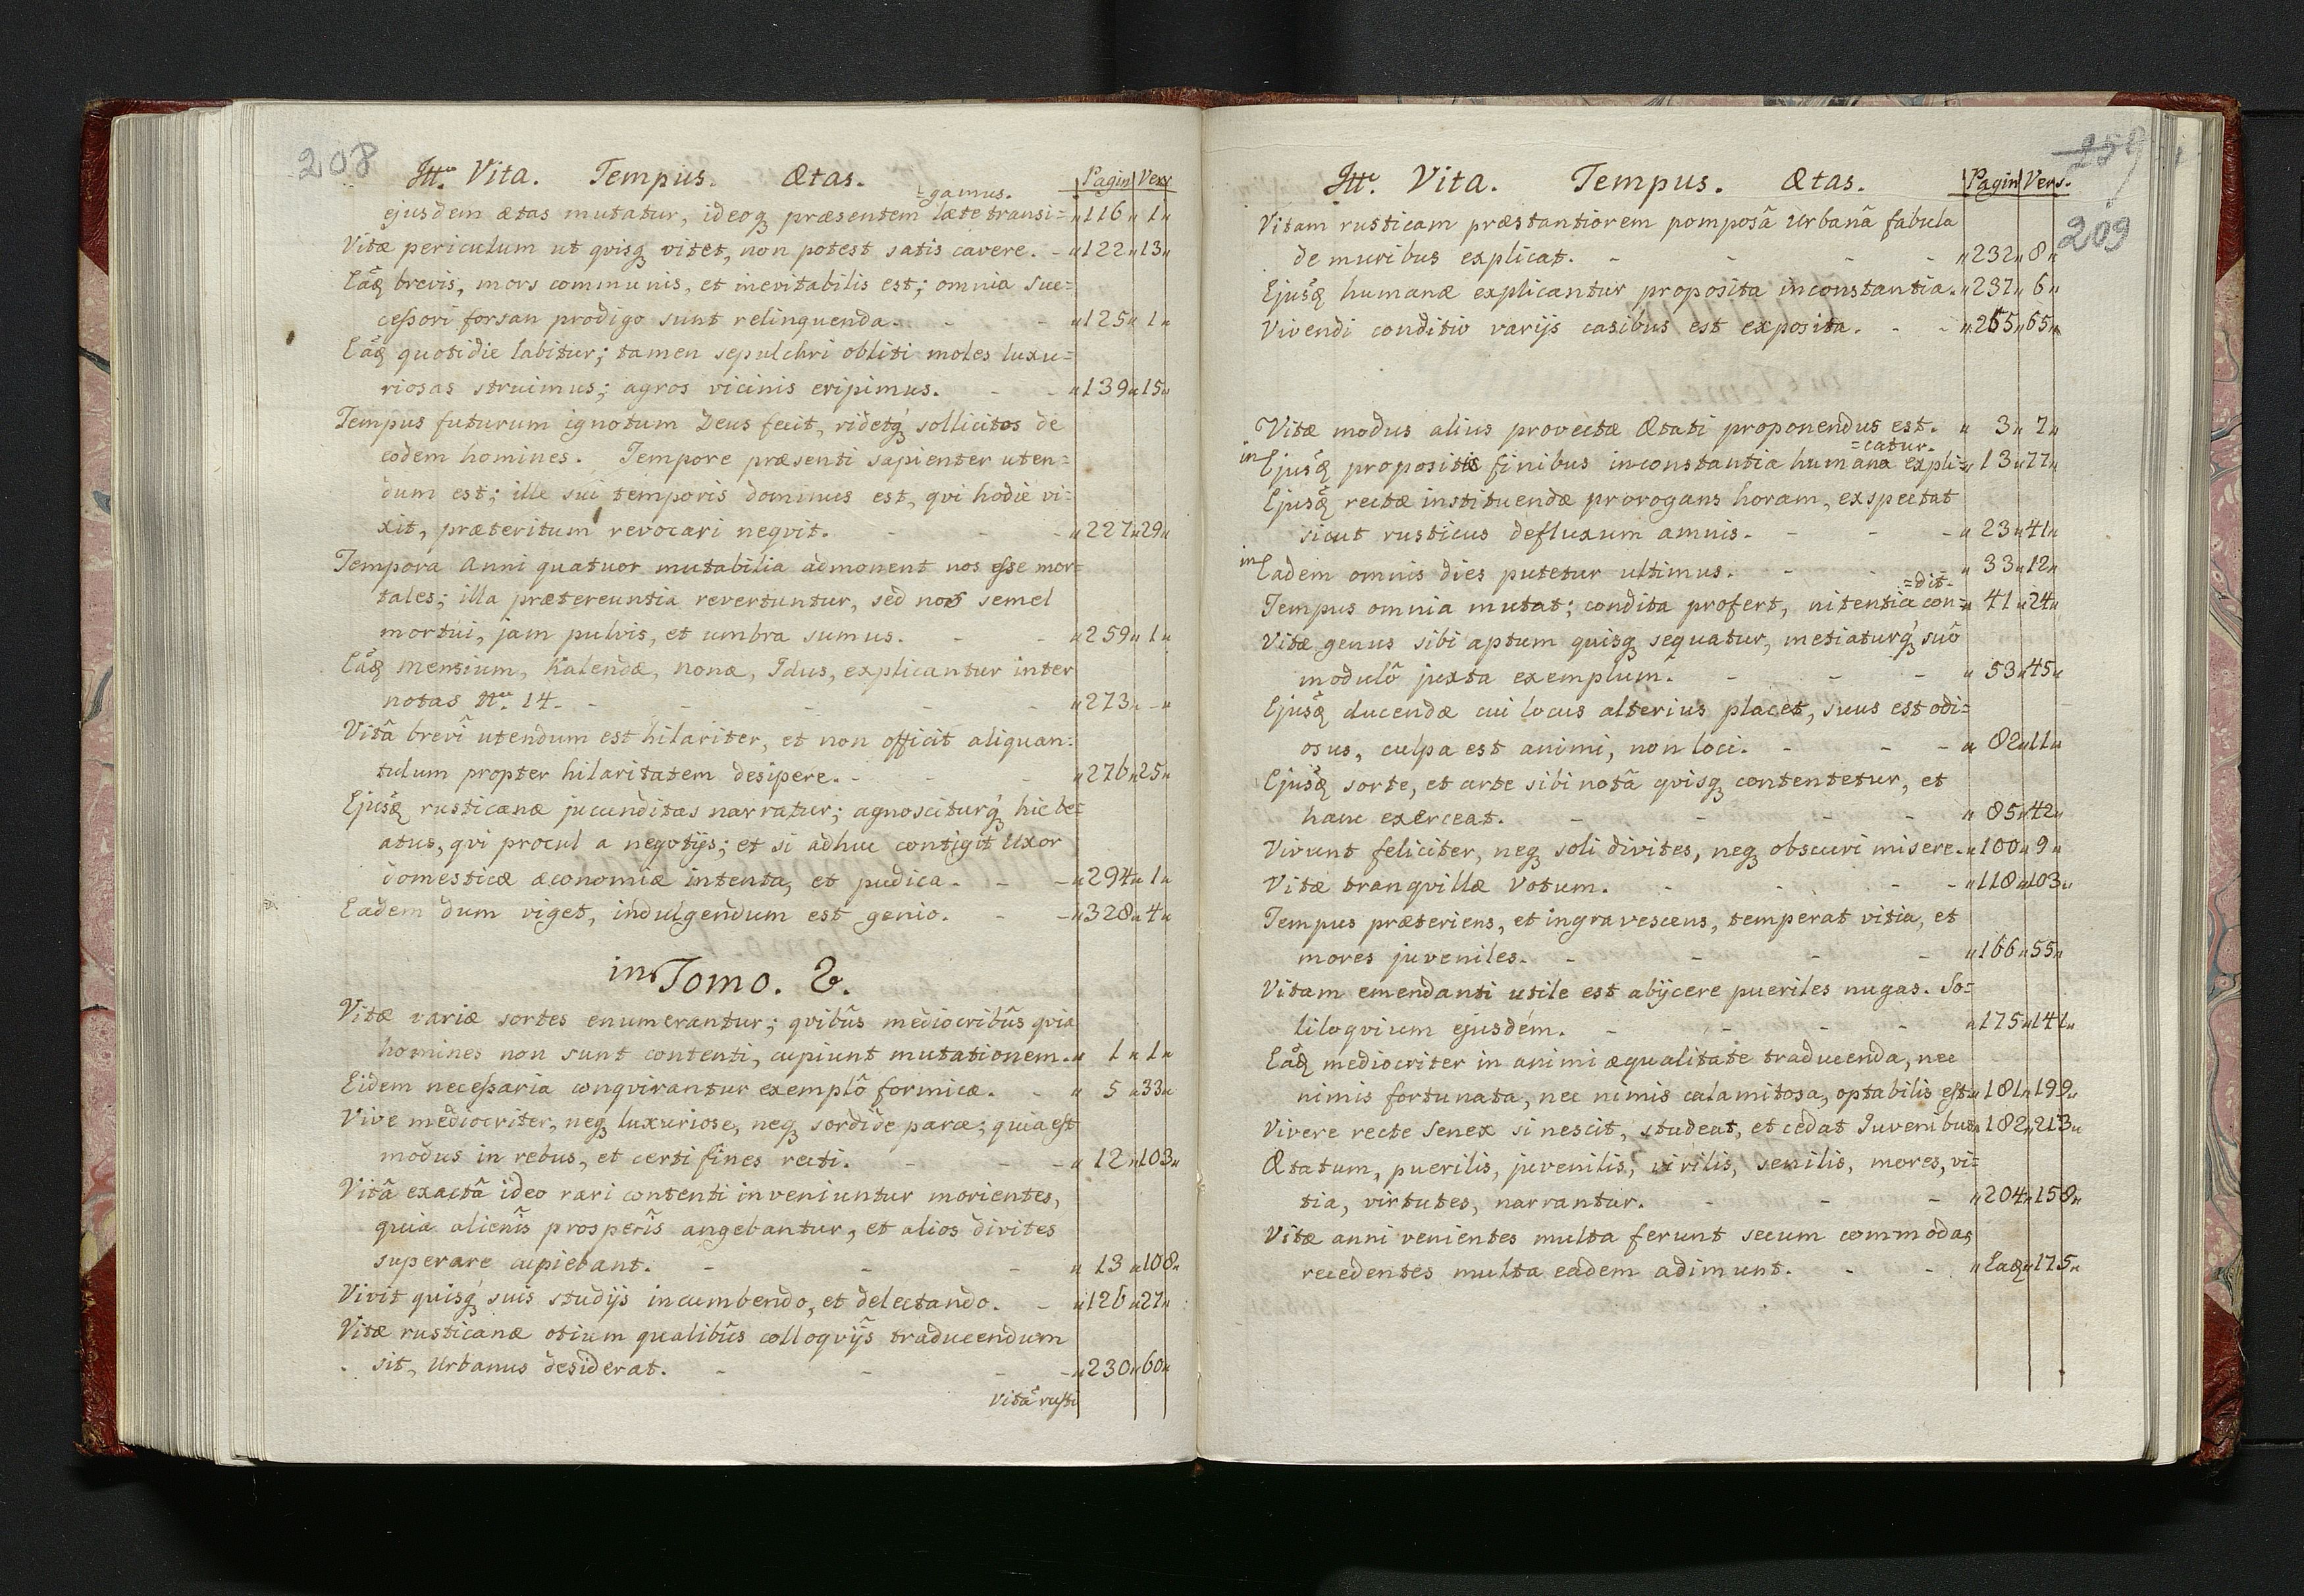 208
Vita. Tempus. Ætas. Pagin Vers
=gamus.
ejusdem ætas mutatur, ideoq₃ præsentem læte transi= „116„ 1„
Vitæ periculum ut qvisq₃ vitet, non potest satis cavere. - „122„13„
Eāq₃ brevis, mors communis, et inevitabilis est; omnia Suc=
ceßori forsan prodigo sunt relinquenda. - - „125„ 1„
Eāq₃ quotidie labitur; tamen sepulchri obliti moles luxu=
riosas struimus; agros vicinis eripimus. - - „139„15„
Tempus futurum ignotum Deus fecit, ridetq₃ sollicitos de
eodem homines. Tempore præsenti sapienter uten=
dum est; ille sui temporis dominus est, qvi hodie vi=
xit, præteritum revocari neqvit. - - - „227„29„
Tempora Anni quatuor mutabilia admonent nos eße mor=
tales; illa prætereuntia revertuntur, sed nos semel
mortui, jam pulvis, et umbra sumus. - - „259„ 1„
Eāq₃ Mensium, Kalendæ, nonæ, Idus, explicantur inter
notas No. 14. - - - - - „273„ - „
Vitâ brevî utendum est hilariter, et non officit aliquan=
tulum propter hilaritatem desipere. - - - „276„25„
Ejusq₃ rusticanæ jucunditas narratur; agnosciturq₃ hic be=
atus, qvi procul a negotijs; et si adhuc contigit Uxor
domesticæ æconomiæ intenta, et pudica. - - „294„ 1„
Eadem dum viget, indulgendum est genio. - - „328„ 4„
in Tomo. 2.
Vitæ variæ sortes enumerantur; qvibûs mediocribûs qvia
homines non sunt contenti, cupiunt mutationem. „ 1 „ 1„
Eidem neceßaria conqvirantur exemplô formicæ. - „ 5 „33„
Vive mediocriter, neq₃ luxuriose, neq₃ sordide parce; quia est
modus in rebus, et certi fines recti. - - - „ 12„103„
Vitâ exactâ ideo rari contenti inveniuntur morientes,
quia alienîs prosperîs angebantur, et alios divites
superare cupiebant. - - - „ 13 „108„
Vivit quisq₃ suis studijs incumbendo, et delectando. - „126„27„
Vitæ rusticanæ otium qualibûs colloqvijs traducendum
sit, Urbanus desiderat. - - - „230„60„
Vitã rusti
259
209
Vita. Tempus. Ætas. Pagin Vers.
Vitam rusticam præstantiorem pomposâ Urbanâ fabula
de muribus explicat. - - - - „232„ 8„
Ejusq₃ humanæ explicantur proposita inconstantia. „237„ 6„
Vivendi conditio varijs casibus est exposita. - - „265„65„
Vitæ modus alius provectæ Ætati proponendus est. „ 3„ 7„
=catur.
in Ejusq₃ propositis finibus inconstantia humana expli= „ 13„77„
Ejusq₃ rectæ instituendæ prorogans horam, exspectat
sicut rusticus defluxum amnis. - - - „ 23„41„
in Eadem omnis dies putetur ultimus. - - „ 33„12„
=dit.
Tempus omnia mutat; condita profert, nitentia con= „ 41„24„
Vitæ genus sibi aptum quisq₃ sequatur, metiaturq₃ suô
modulô juxta exemplum. - - - „ 53„45„
Ejusq₃ ducendæ cui locus alterius placet, suus est odi=
osus, culpa est animi, non loci. - - - „ 82„11„
Ejusq₃ sorte, et arte sibi notâ qvisq₃ contentetur, et
hanc exerceat. - - - - „ 85„42„
Vivunt feliciter, neq₃ soli divites, neq₃ obscuri misere. „100„ 9„
Vitæ tranqvillæ Votum. - - - - „118„103„
Tempus præteriens, et ingravescens, temperat vitia, et
mores juveniles. - - - - „166„55„
Vitam emendanti utile est abijcere pueriles nugas. So=
liloqvium ejusdem. - - - - „175„141„
Eāq₃ mediocriter in animi æqualitate traducenda, nec
nimis fortunata, nec nimis calamitosa, optabilis est „181„199„
Vivere recte Senex si nescit, studeat, et cedat Juvenibus „182„213„
Ætatum, puerilis, juvenilis, virilis, senilis, mores, vi=
tia, virtutes, narrantur. - - - „204„158„
Vitæ anni venientes multa ferunt secum commoda,
recedentes multa eadem adimunt. - - „Eaq₃„175„